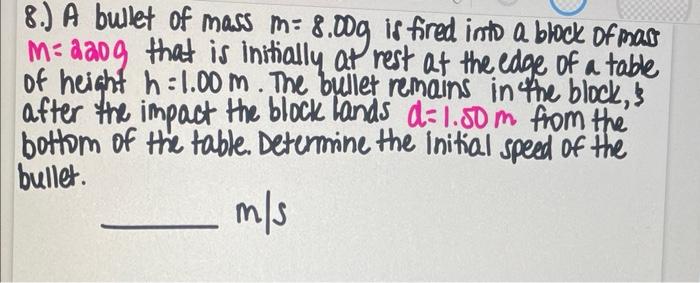 8.) A bullet of mass m= 8.00g is fired into a block of mass
m= 220g that is initially at rest at the edge of a table
of height h=1.00 m. The bullet remains in the block, &
after the impact the block lands d=1.50 m from the
bottom of the table. Determine the initial speed of the
bullet.
______ m/s